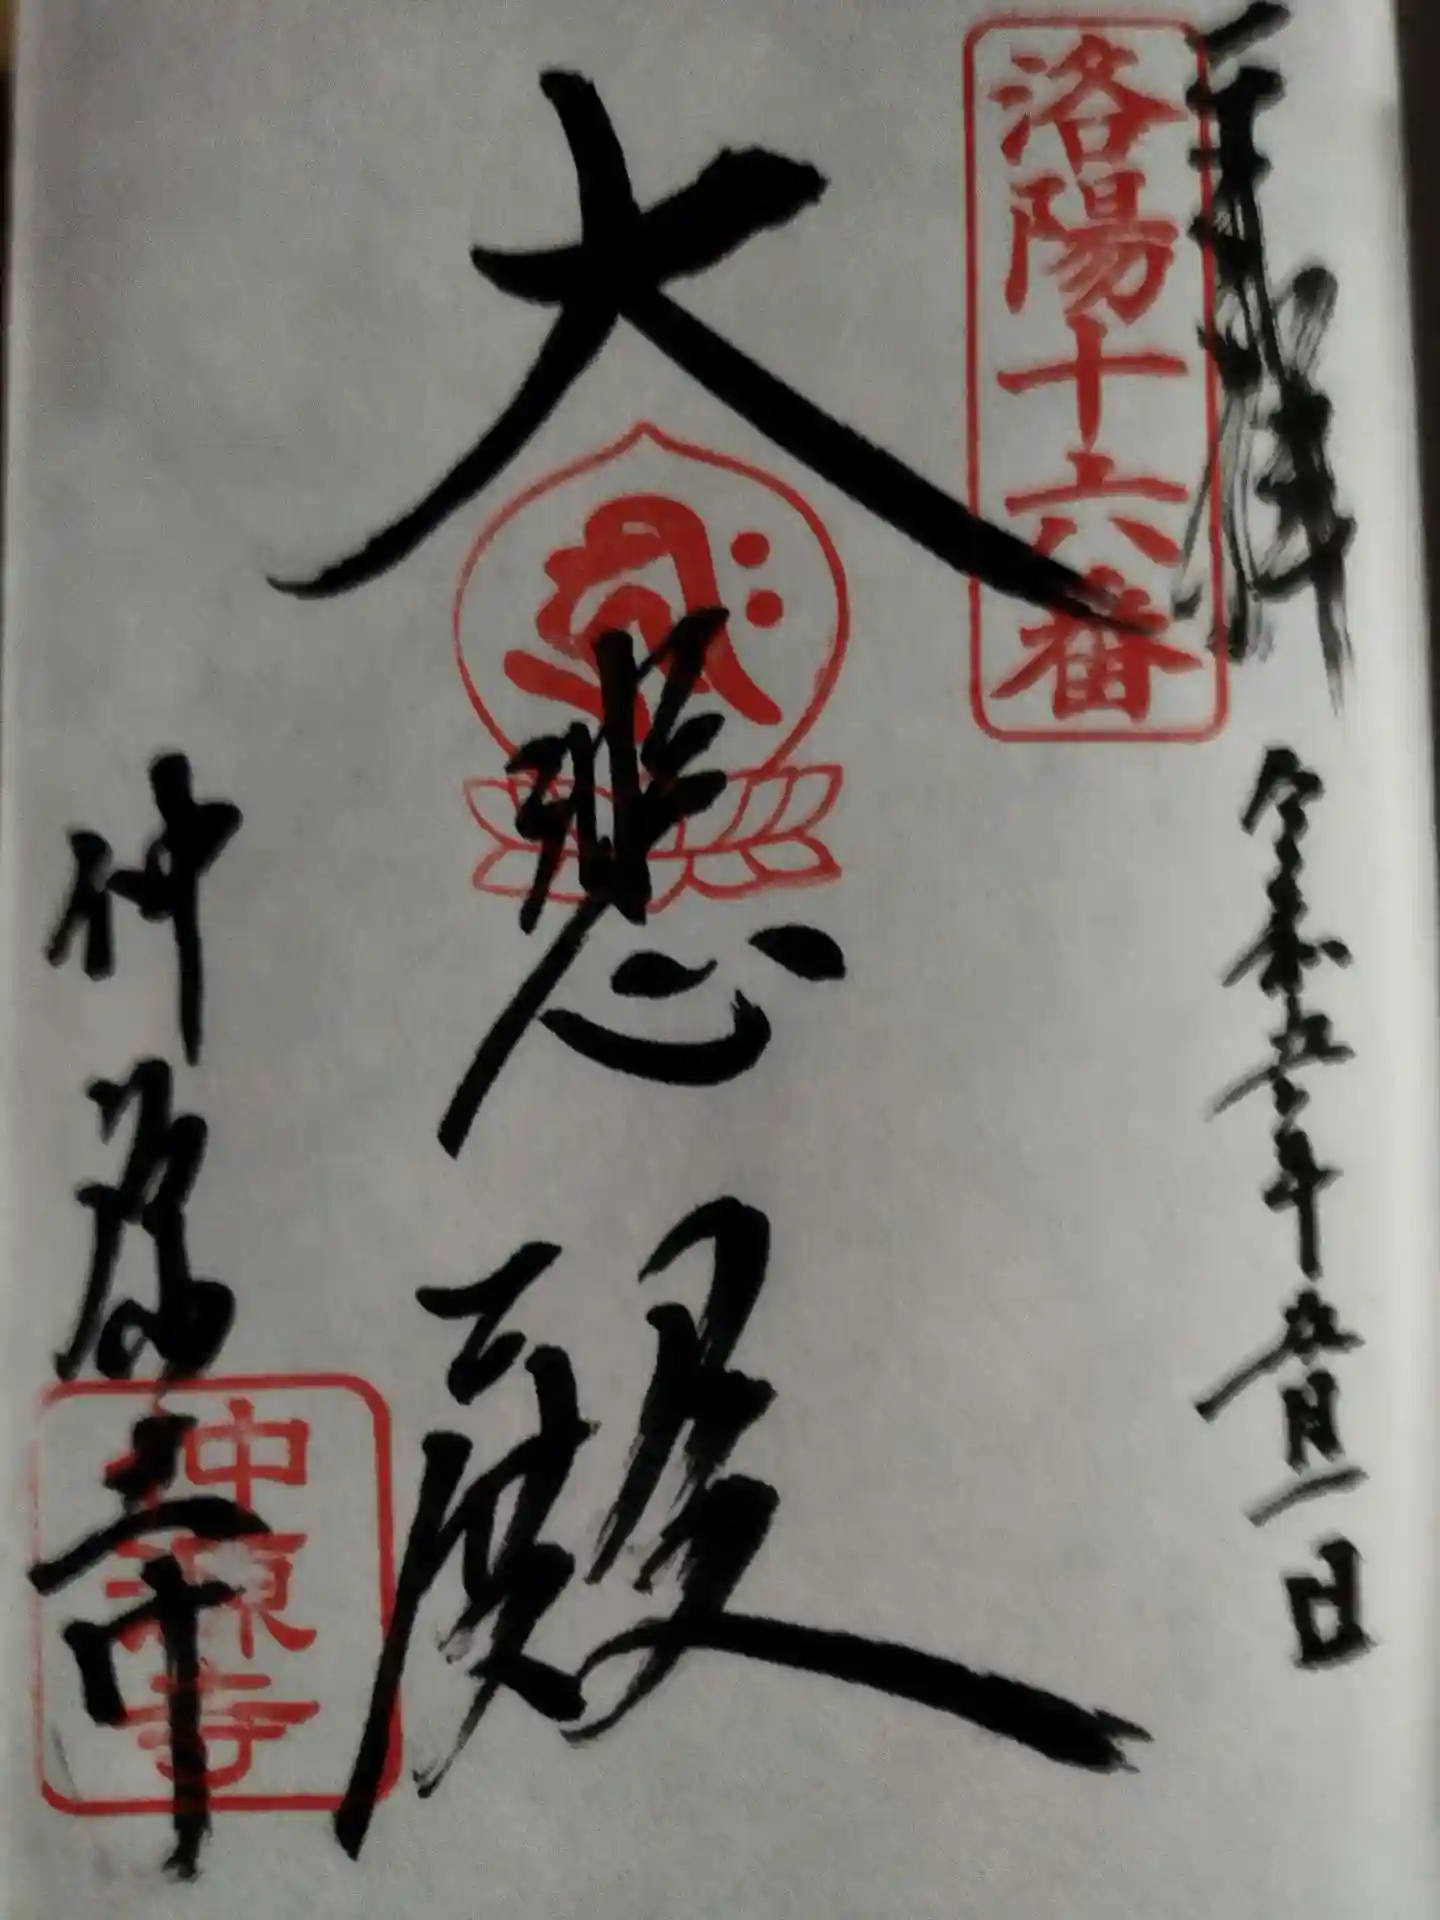 奉拝
令和五年五月一日
洛陽十六番
大悲殿
仲源寺
仲源寺